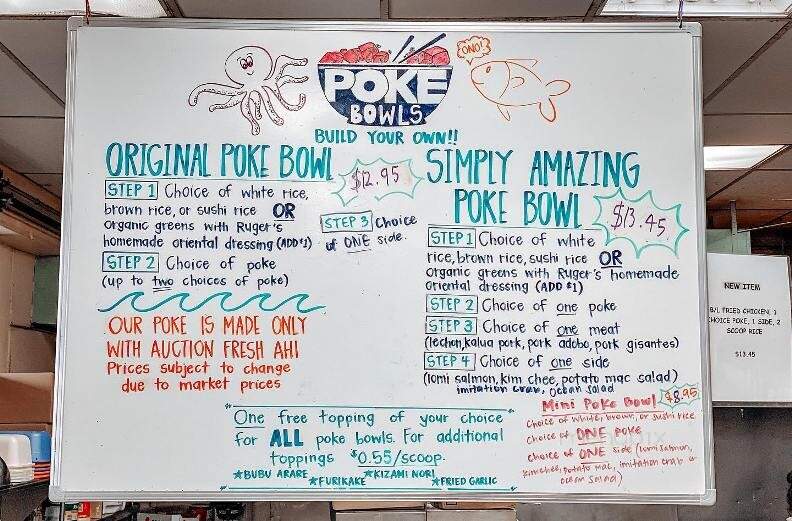 ONO!
POKE
BOWLS
BUILD YOUR OWN!!
ORIGINAL POKE BOWL
$12.95
STEP 1 Choice of white rice,
brown rice, or sushi rice OR
organic greens with Ruger's
homemade oriental dressing (ADD $1)
STEP 2 Choice of poke
(up to two choices of poke)
STEP 3 Choice
of ONE side.
OUR POKE IS MADE ONLY
WITH AUCTION FRESH AHI
Prices subject to change
due to market prices
SIMPLY AMAZING
POKE BOWL
$13.45
STEP 1 Choice of white
rice, brown rice, sushi rice OR
organic greens with Ruger's homemade
oriental dressing (ADD $1)
STEP 2 Choice of one poke
STEP 3 Choice of one meat
(lechon, kalua pork, pork adobo, pork gisantes)
STEP 4 Choice of one side
(lomi salmon, kim chee, potato mac salad)
imitation crab, ocean salad
Mini Poke Bowl $8.95
Choice of white, brown, or sushi rice
choice of ONE poke
choice of ONE side (lomi salmon,
kimchee, potato mac, imitation crab or
ocean salad)
One free topping of your choice
for ALL poke bowls. For additional
toppings $0.55/scoop.
★BUBU ARARE ★KIZAMI NORI
★FURIKAKE ★FRIED GARLIC
NEW ITEM
B/L FRIED CHICKEN, 1
CHOICE POKE, 1 SIDE, 2
SCOOP RICE
$13.45